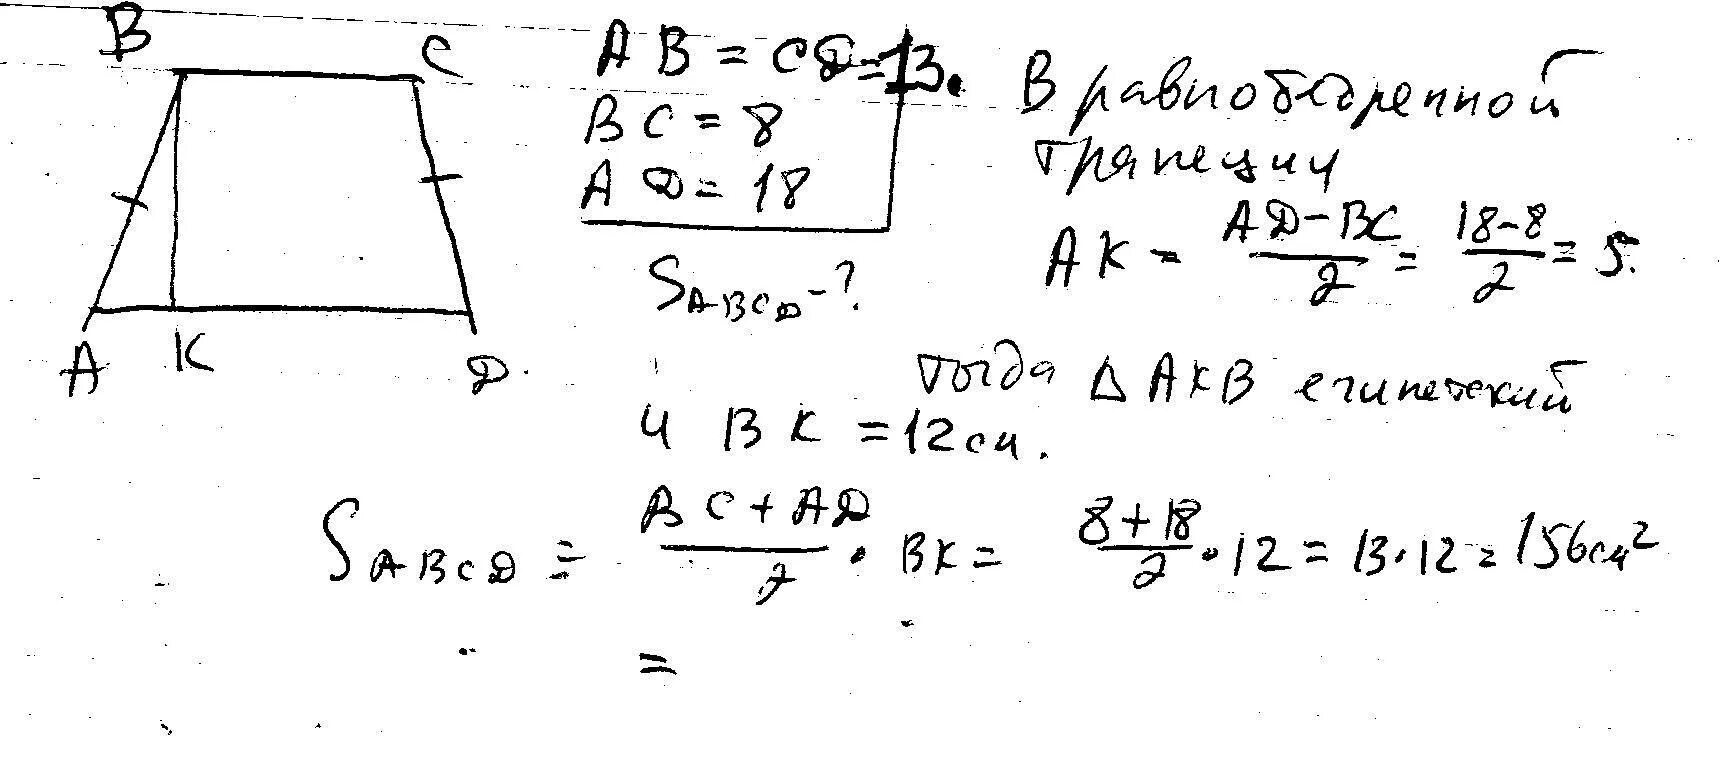 B C
A K D.
AB = CD = 13.
BC = 8
AD = 18
S_ABCD - ?
В равнобедренной
трапеции
AK = (AD - BC)/2 = (18 - 8)/2 = 5.
тогда Δ AKB египетский
и BK = 12 см.
S_ABCD = (BC + AD)/2 · BK = (8 + 18)/2 · 12 = 13 · 12 = 156 см²
=